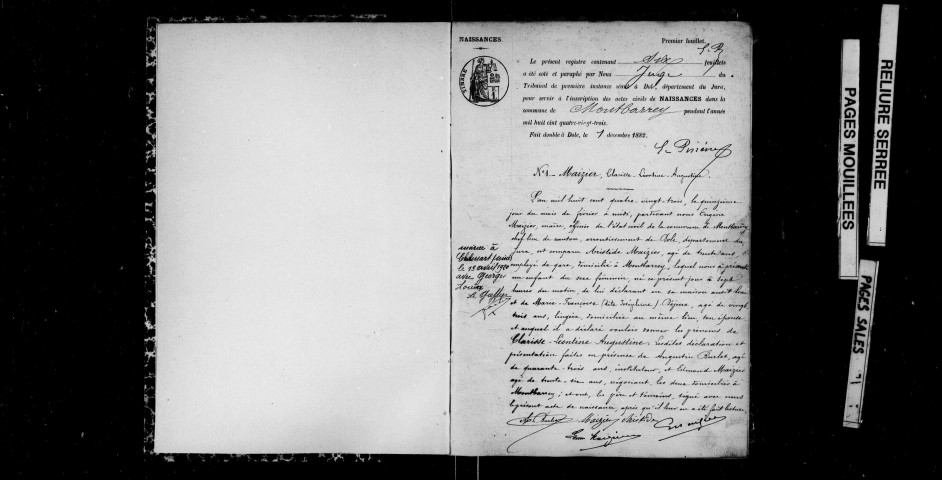 NAISSANCES.
Premier feuillet.
Le présent registre contenant dix feuillets
a été coté et paraphé par Nous Juge du
Tribunal de première instance séant à Dole, département du Jura,
pour servir à l'inscription des actes civils de NAISSANCES dans la
commune de Montbarrey pendant l'année
mil huit cent quatre-vingt-trois.
Fait double à Dole, le 1 décembre 1882.
N° 1 - Maizier, Clarisse-Léontine-Augustine.
L'an mil huit cent quatre-vingt-trois, le quinzième
jour du mois de février à midi, pardevant nous Eugène
Maizier, maire, officier de l'état civil de la commune de Montbarrey
chef-lieu de canton, arrondissement de Dole, département du
Jura, est comparu Aristide Maizier, agé de trente ans,
employé de gare, domicilié à Montbarrey, lequel nous a présenté
un enfant du sexe féminin, né ce présent jour à sept
heures du matin, de lui déclarant en sa maison audit lieu
et de Marie-Françoise (dite Joséphine) agé de vingt
trois ans, lingère, domiciliée au même lieu, son épouse
et auquel il a déclaré vouloir donner les prénoms de
Clarisse-Léontine Augustine. Lesdites déclaration et
présentation faites en présence de Augustin agé
de quarante-trois ans, instituteur, et Edmond Maizier
agé de trente-six ans, négociant, les deux domiciliés à
Montbarrey; et ont, les père et témoins, signé avec nous
le présent acte de naissance, après qu'il leur en a été fait lecture.
Maizier Aristide
mariée à
le 13 avril 1920
avec Georges
Louis
PAGES MOUILLEES
RELIURE SERREE
PAGES SALES